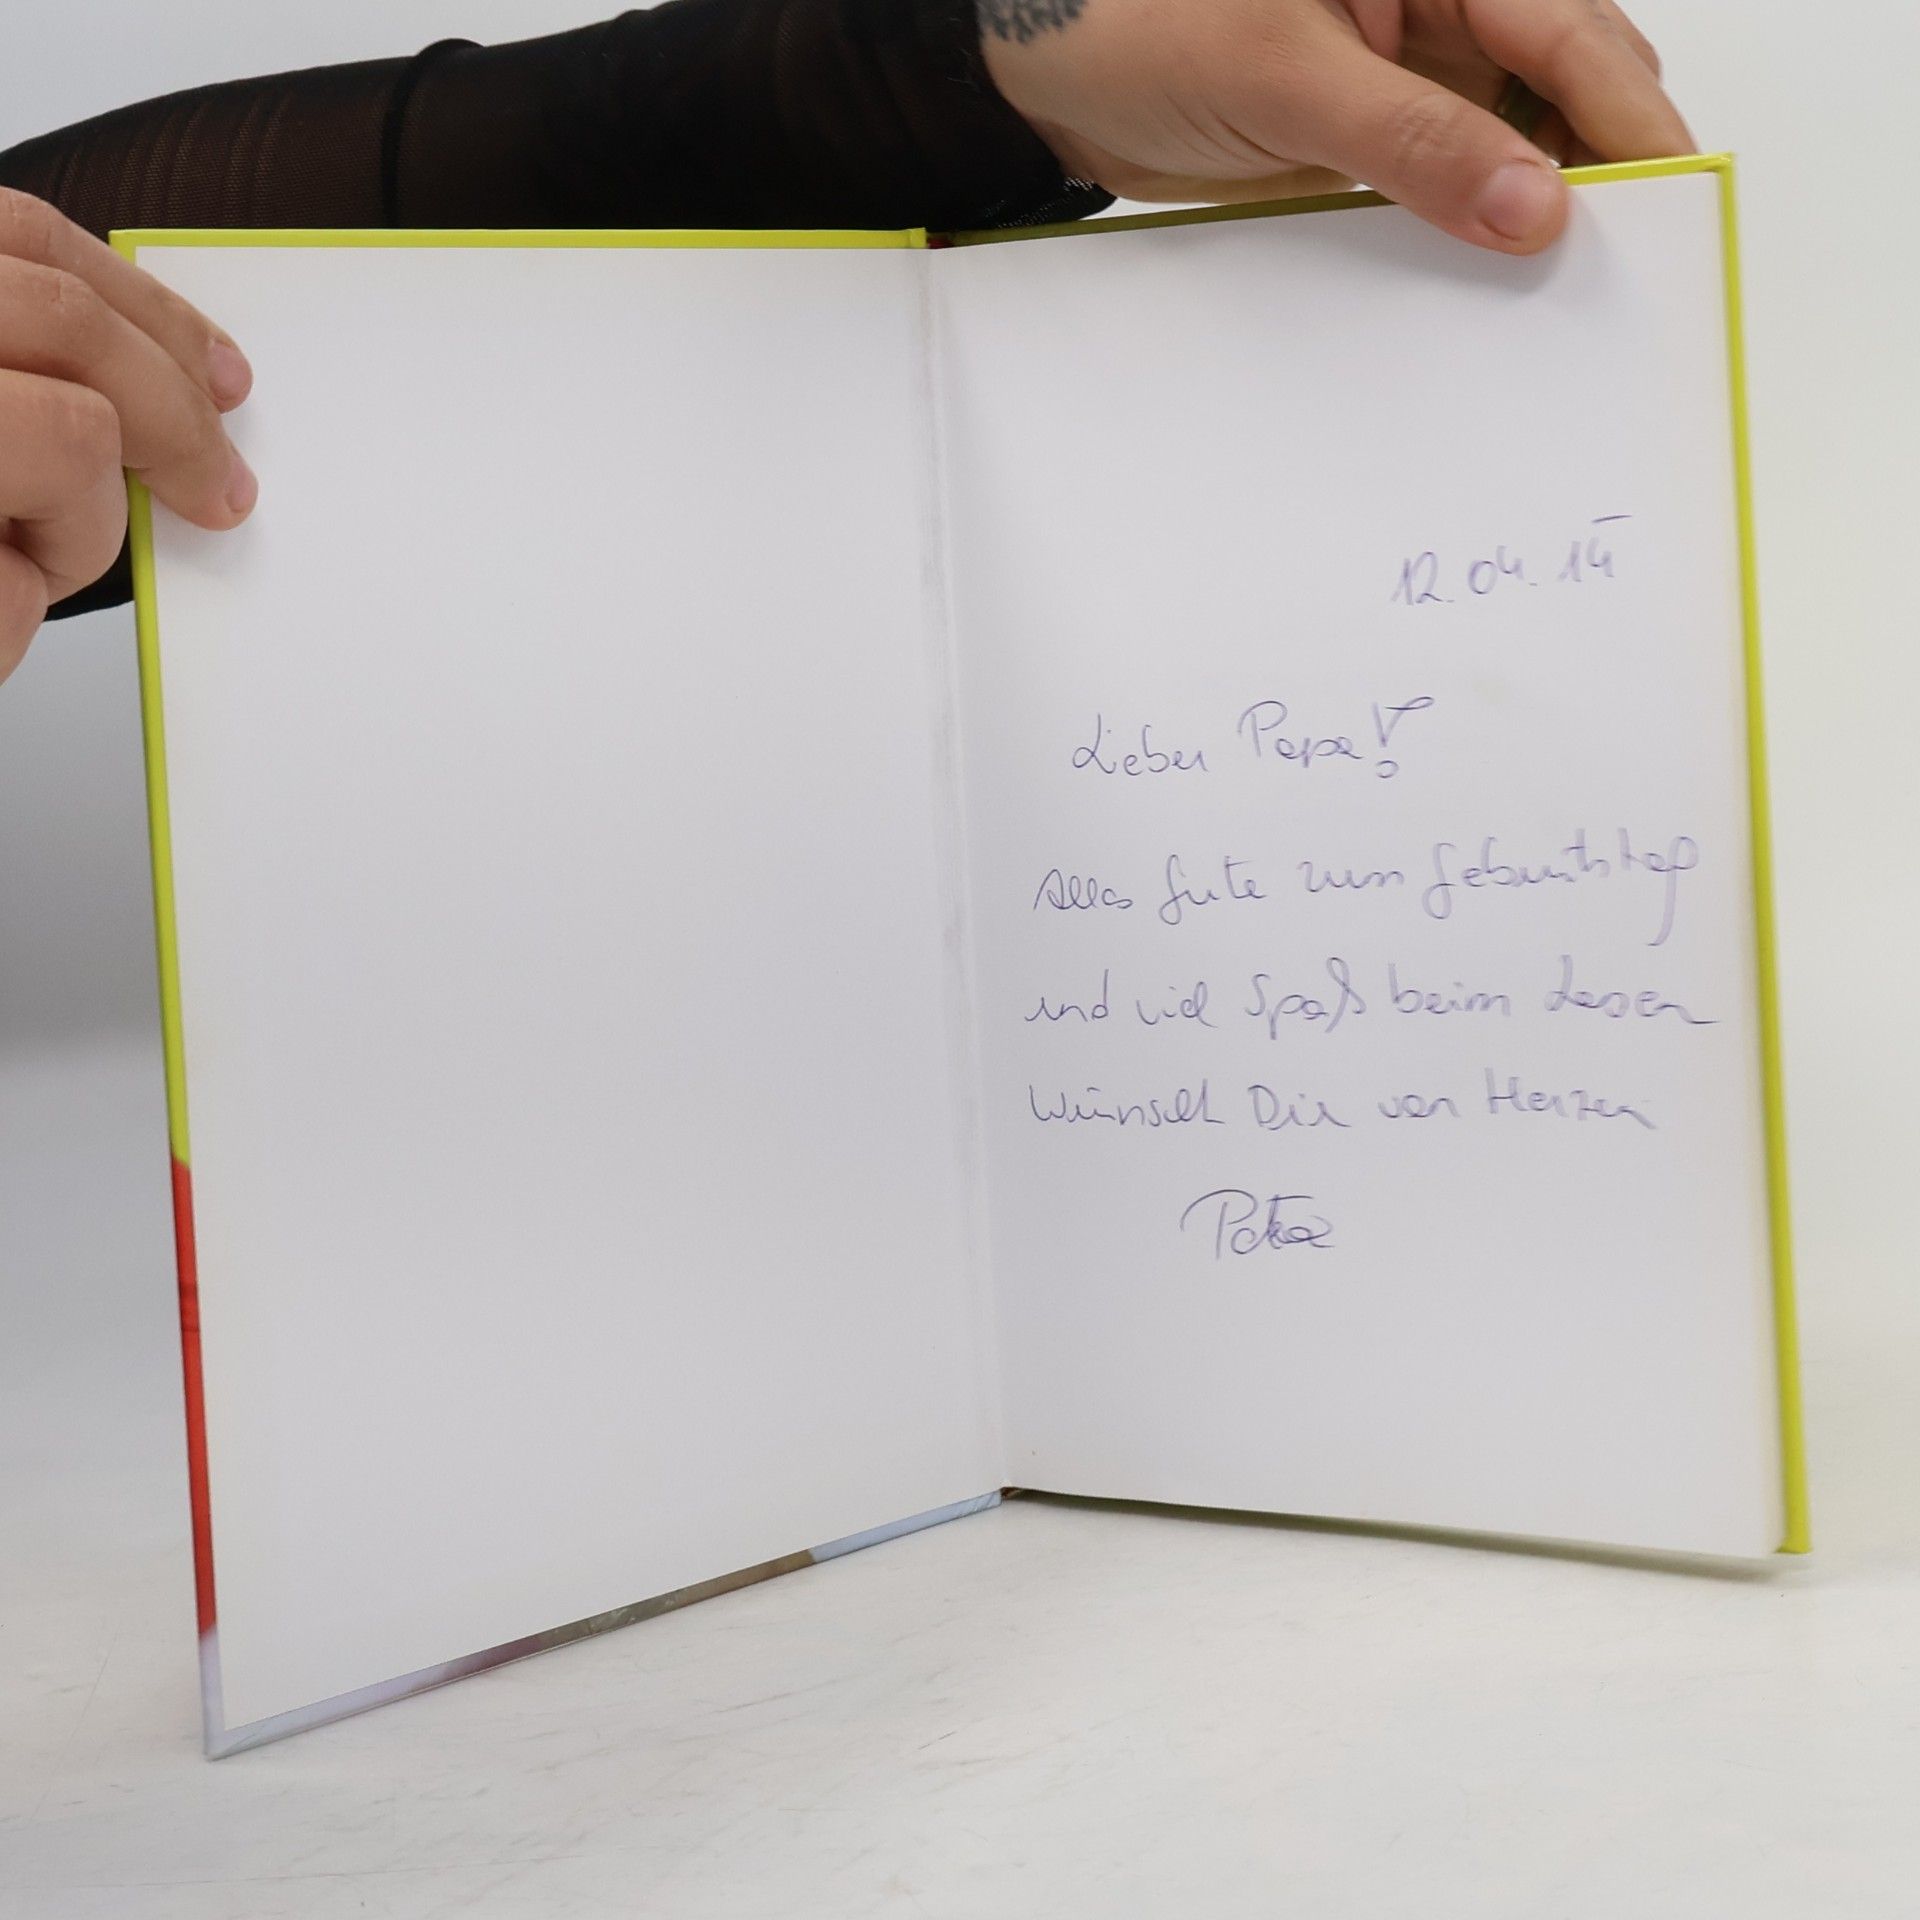 12.04.14
Lieber Papa!
Alles Gute zum Geburtstag
und viel Spaß beim Lesen
wünscht Dir von Herzen
Petra